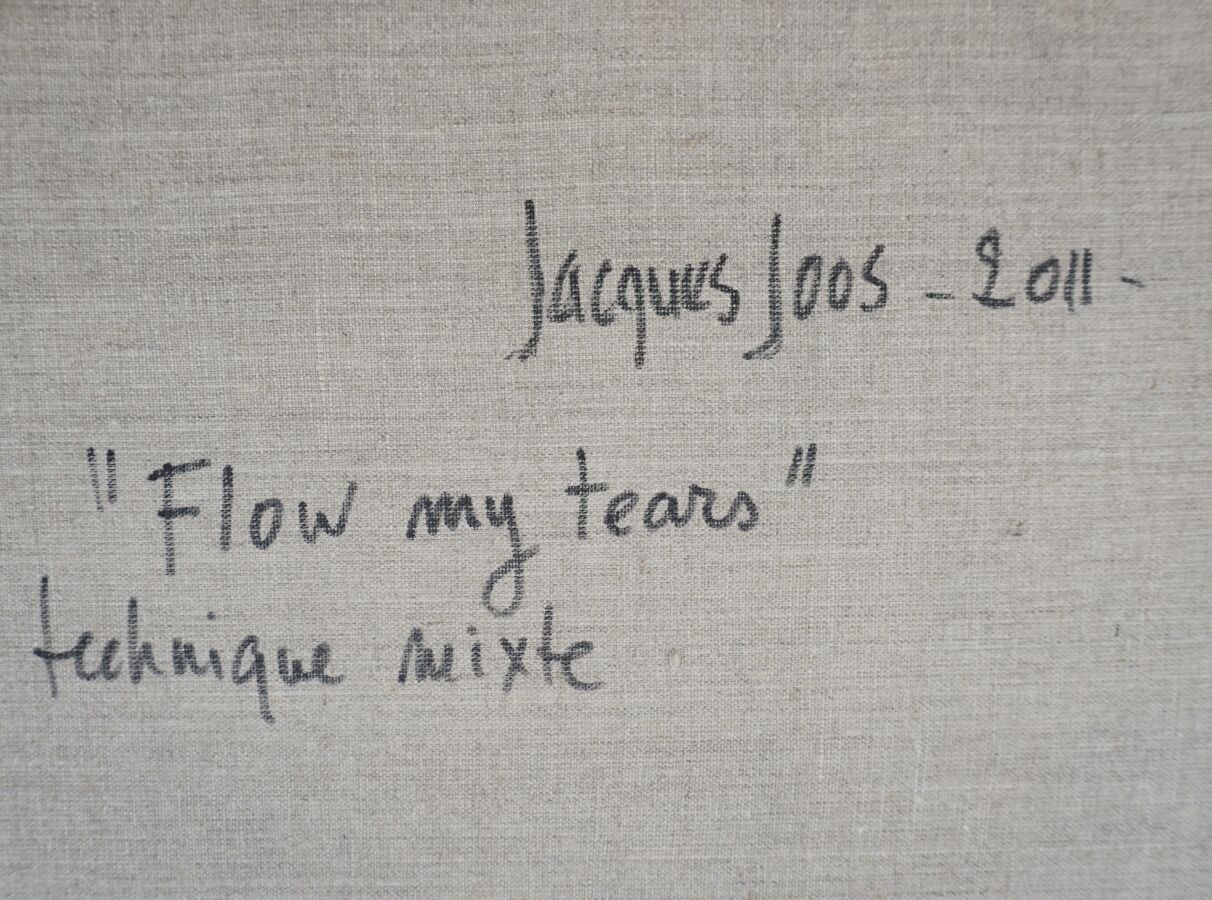 Jacques Joos - 2011 -
"Flow my tears"
technique mixte